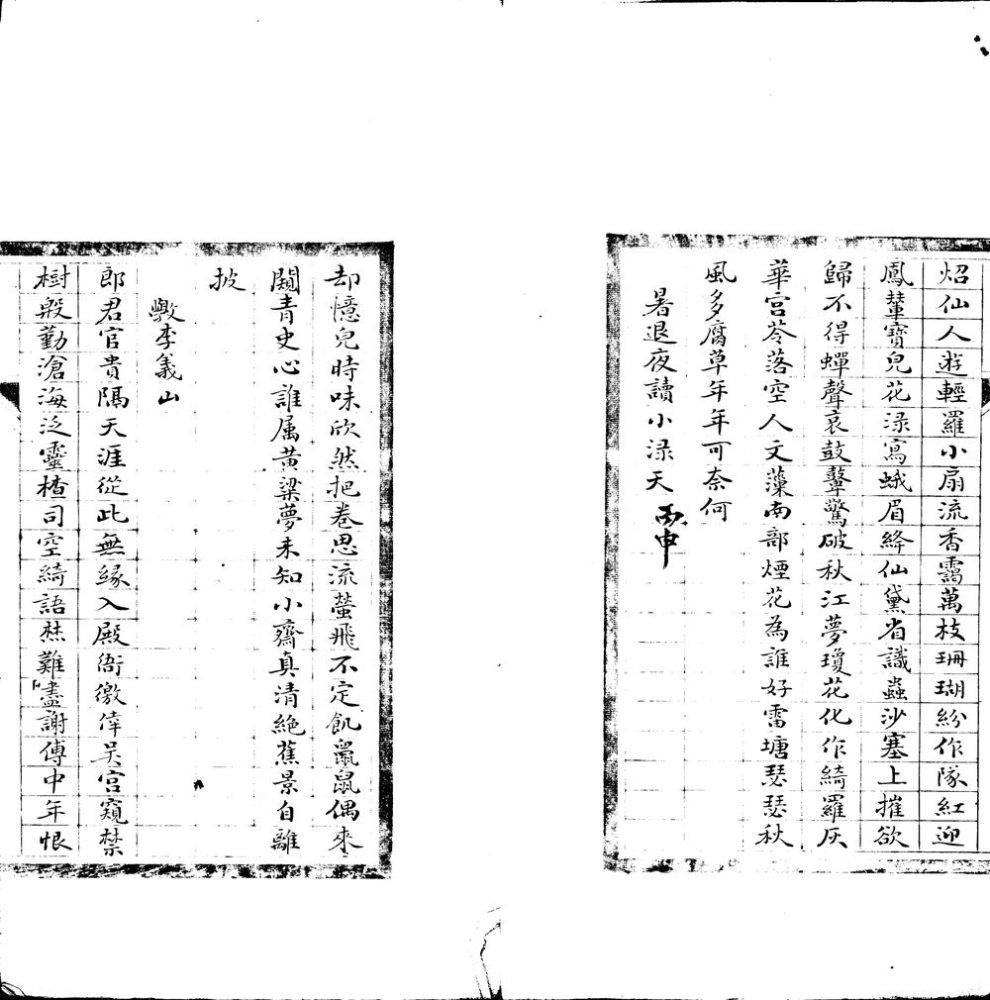 炤仙人遊輕羅小扇流香靄萬枝珊瑚紛作隊紅迎
鳳輦寶兒花淥寫蛾眉絳仙黛省識蟲沙塞上摧欲
歸不得蟬聲哀鼓鼙驚破秋江夢瓊花化作綺羅灰
華宮苓落空人文藻南部煙花為誰好雷塘瑟瑟秋
風多腐草年年可奈何
暑退夜讀小淥天 丙申
却憶兒時味欣然把卷思流螢飛不定飢鼠偶來
闚青史心誰属黃粱夢未知小齋真清絕蕉景自離
披
李義山
郎君官貴隔天涯從此無緣入殿衙徼倖吴宮窺禁
樹殷勤滄海泛靈楂司空綺語焚難盡謝傅中年恨